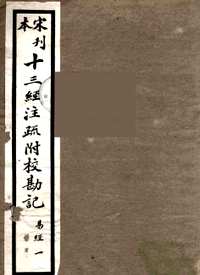 宋刊
本
十三經注疏附校勘記
易經一